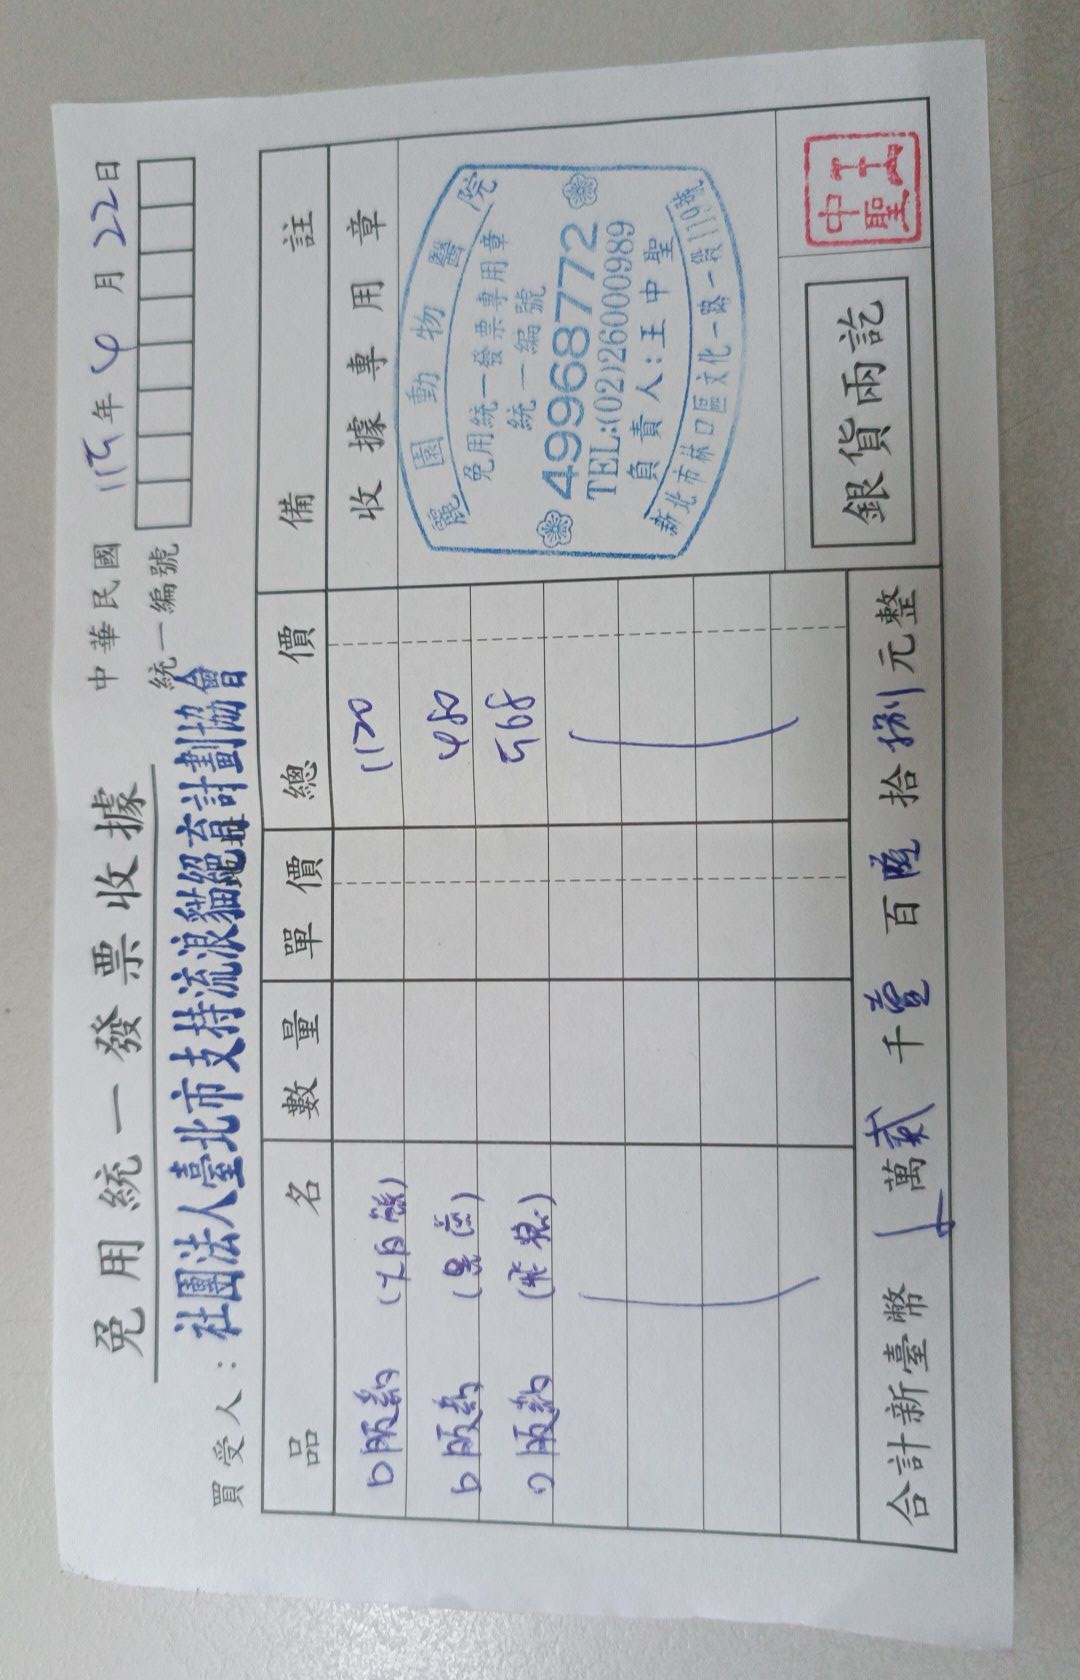 免用統一發票收據
中華民國 115年4月22日
買受人：社團法人臺北市支持流浪貓絕育計劃協會
統一編號
品名 數量 單價 總價 備註
口服藥 1120
口服藥 480
口服藥 568
收據專用章
麗園動物醫院
免用統一發票專用章
統一編號
49968772
TEL:(02)26000989
負責人:王中聖
新北市林口區文化一路一段110號
銀貨兩訖
王中聖
合計新臺幣 萬貳千壹百陸拾捌元整